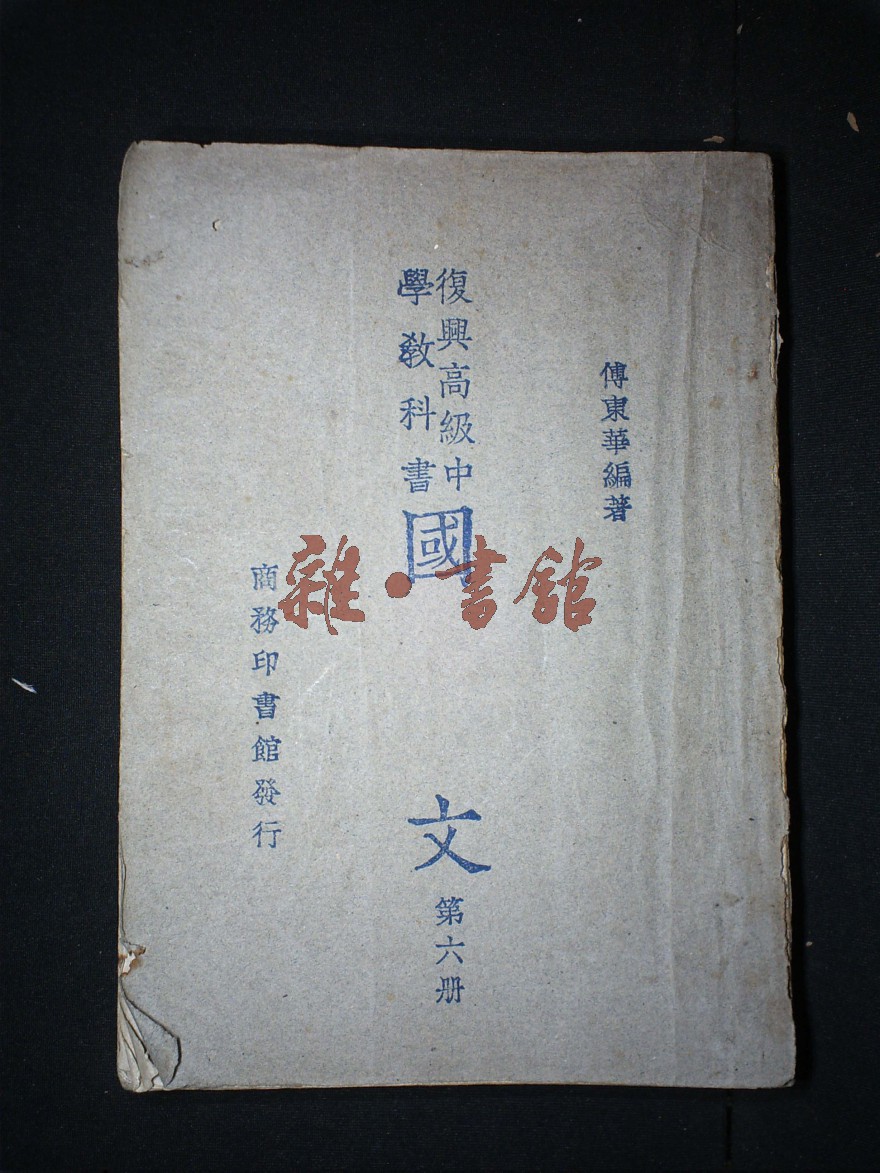 傅東華編著
復興高級中
學教科書
國文
第六册
商務印書館發行
雜·書館